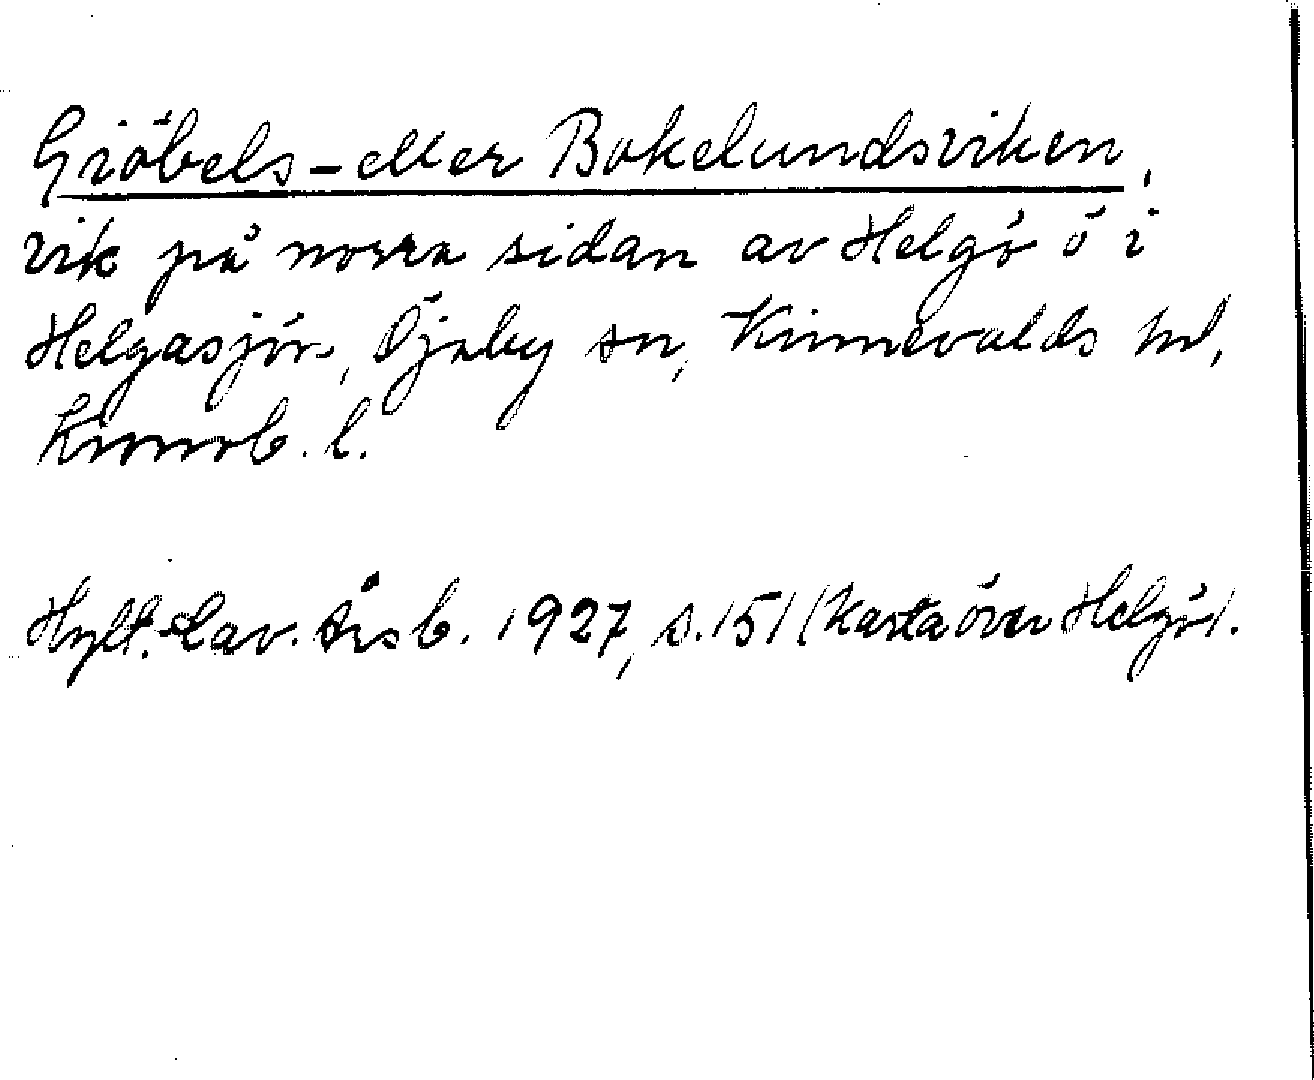 Gröbels- eller Bokelundsviken,
vik på norra sidan av Helgö ö i
Helgasjön, Öjaby sn, Kinnevalds hd,
Kronob. l.
Hylt.-Cav. Årsb. 1927, s. 151 (Karta över Helgö).